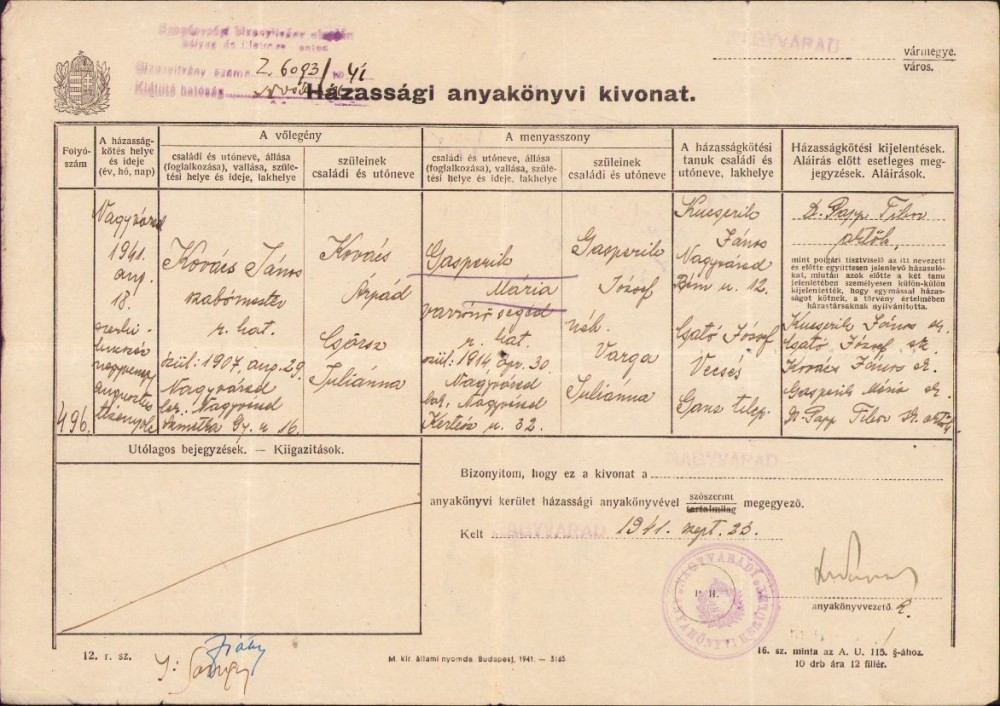 NAGYVARAD
vármegye.
város.
Z. 6093/1941
Házassági anyakönyvi kivonat.
Folyó-
szám
A házasság-
kötés helye
és ideje
(év, hó, nap)
A vőlegény
családi és utóneve, állása
(foglalkozása), vallása, szüle-
tési helye és ideje, lakhelye
szüleinek
családi és utóneve
A menyasszony
családi és utóneve, állása
(foglalkozása), vallása, szüle-
tési helye és ideje, lakhelye
szüleinek
családi és utóneve
A házasságkötési
tanuk családi és
utóneve, lakhelye
Házasságkötési kijelentések.
Aláírás előtt esetleges meg-
jegyzések. Aláírások.
496.
Nagyvárad
1941.
aug.
18.
Kovács János
szabómester
r. kat.
szül: 1907. aug. 29.
Nagyvárad
lak. Nagyvárad
Gy. u. 16.
Kovács
Árpád
Csörsz
Juliánna
Gasperik
Mária
varrónő segéd
r. kat.
szül: 1914. ápr. 30.
Nagyvárad
lak. Nagyvárad
Kertész u. 32.
Gasperik
József
néh.
Varga
Juliánna
Kucserik
János
Nagyvárad
Bém u. 12.
Gató József
Vecsés
Ganz telep.
Dr. Papp Tibor
mint polgári tisztviselő az itt nevezett
és előtte együttesen jelenlevő házasulók-
kat, miután azok előtte a két tanu
jelenlétében személyesen külön-külön
kijelentették, hogy egymással házas-
ságot kötnek, a törvény értelmében
házastársaknak nyilvánította.
Kucserik János sk.
Gató József sk.
Kovács János sk.
Gasperik Mária sk.
Dr. Papp Tibor sk.
Utólagos bejegyzések. — Kiigazítások.
NAGYVARAD
Bizonyítom, hogy ez a kivonat a
anyakönyvi kerület házassági anyakönyvével szószerint megegyező.
tartalmilag
NAGYVARAD
Kelt 1941. szept. 23.
NAGYVÁRADI
P. H.
anyakönyvvezető
12. r. sz.
M. kir. állami nyomda. Budapest, 1941. — 3165
16. sz. minta az A. U. 115. §-ához.
10 drb ára 12 fillér.